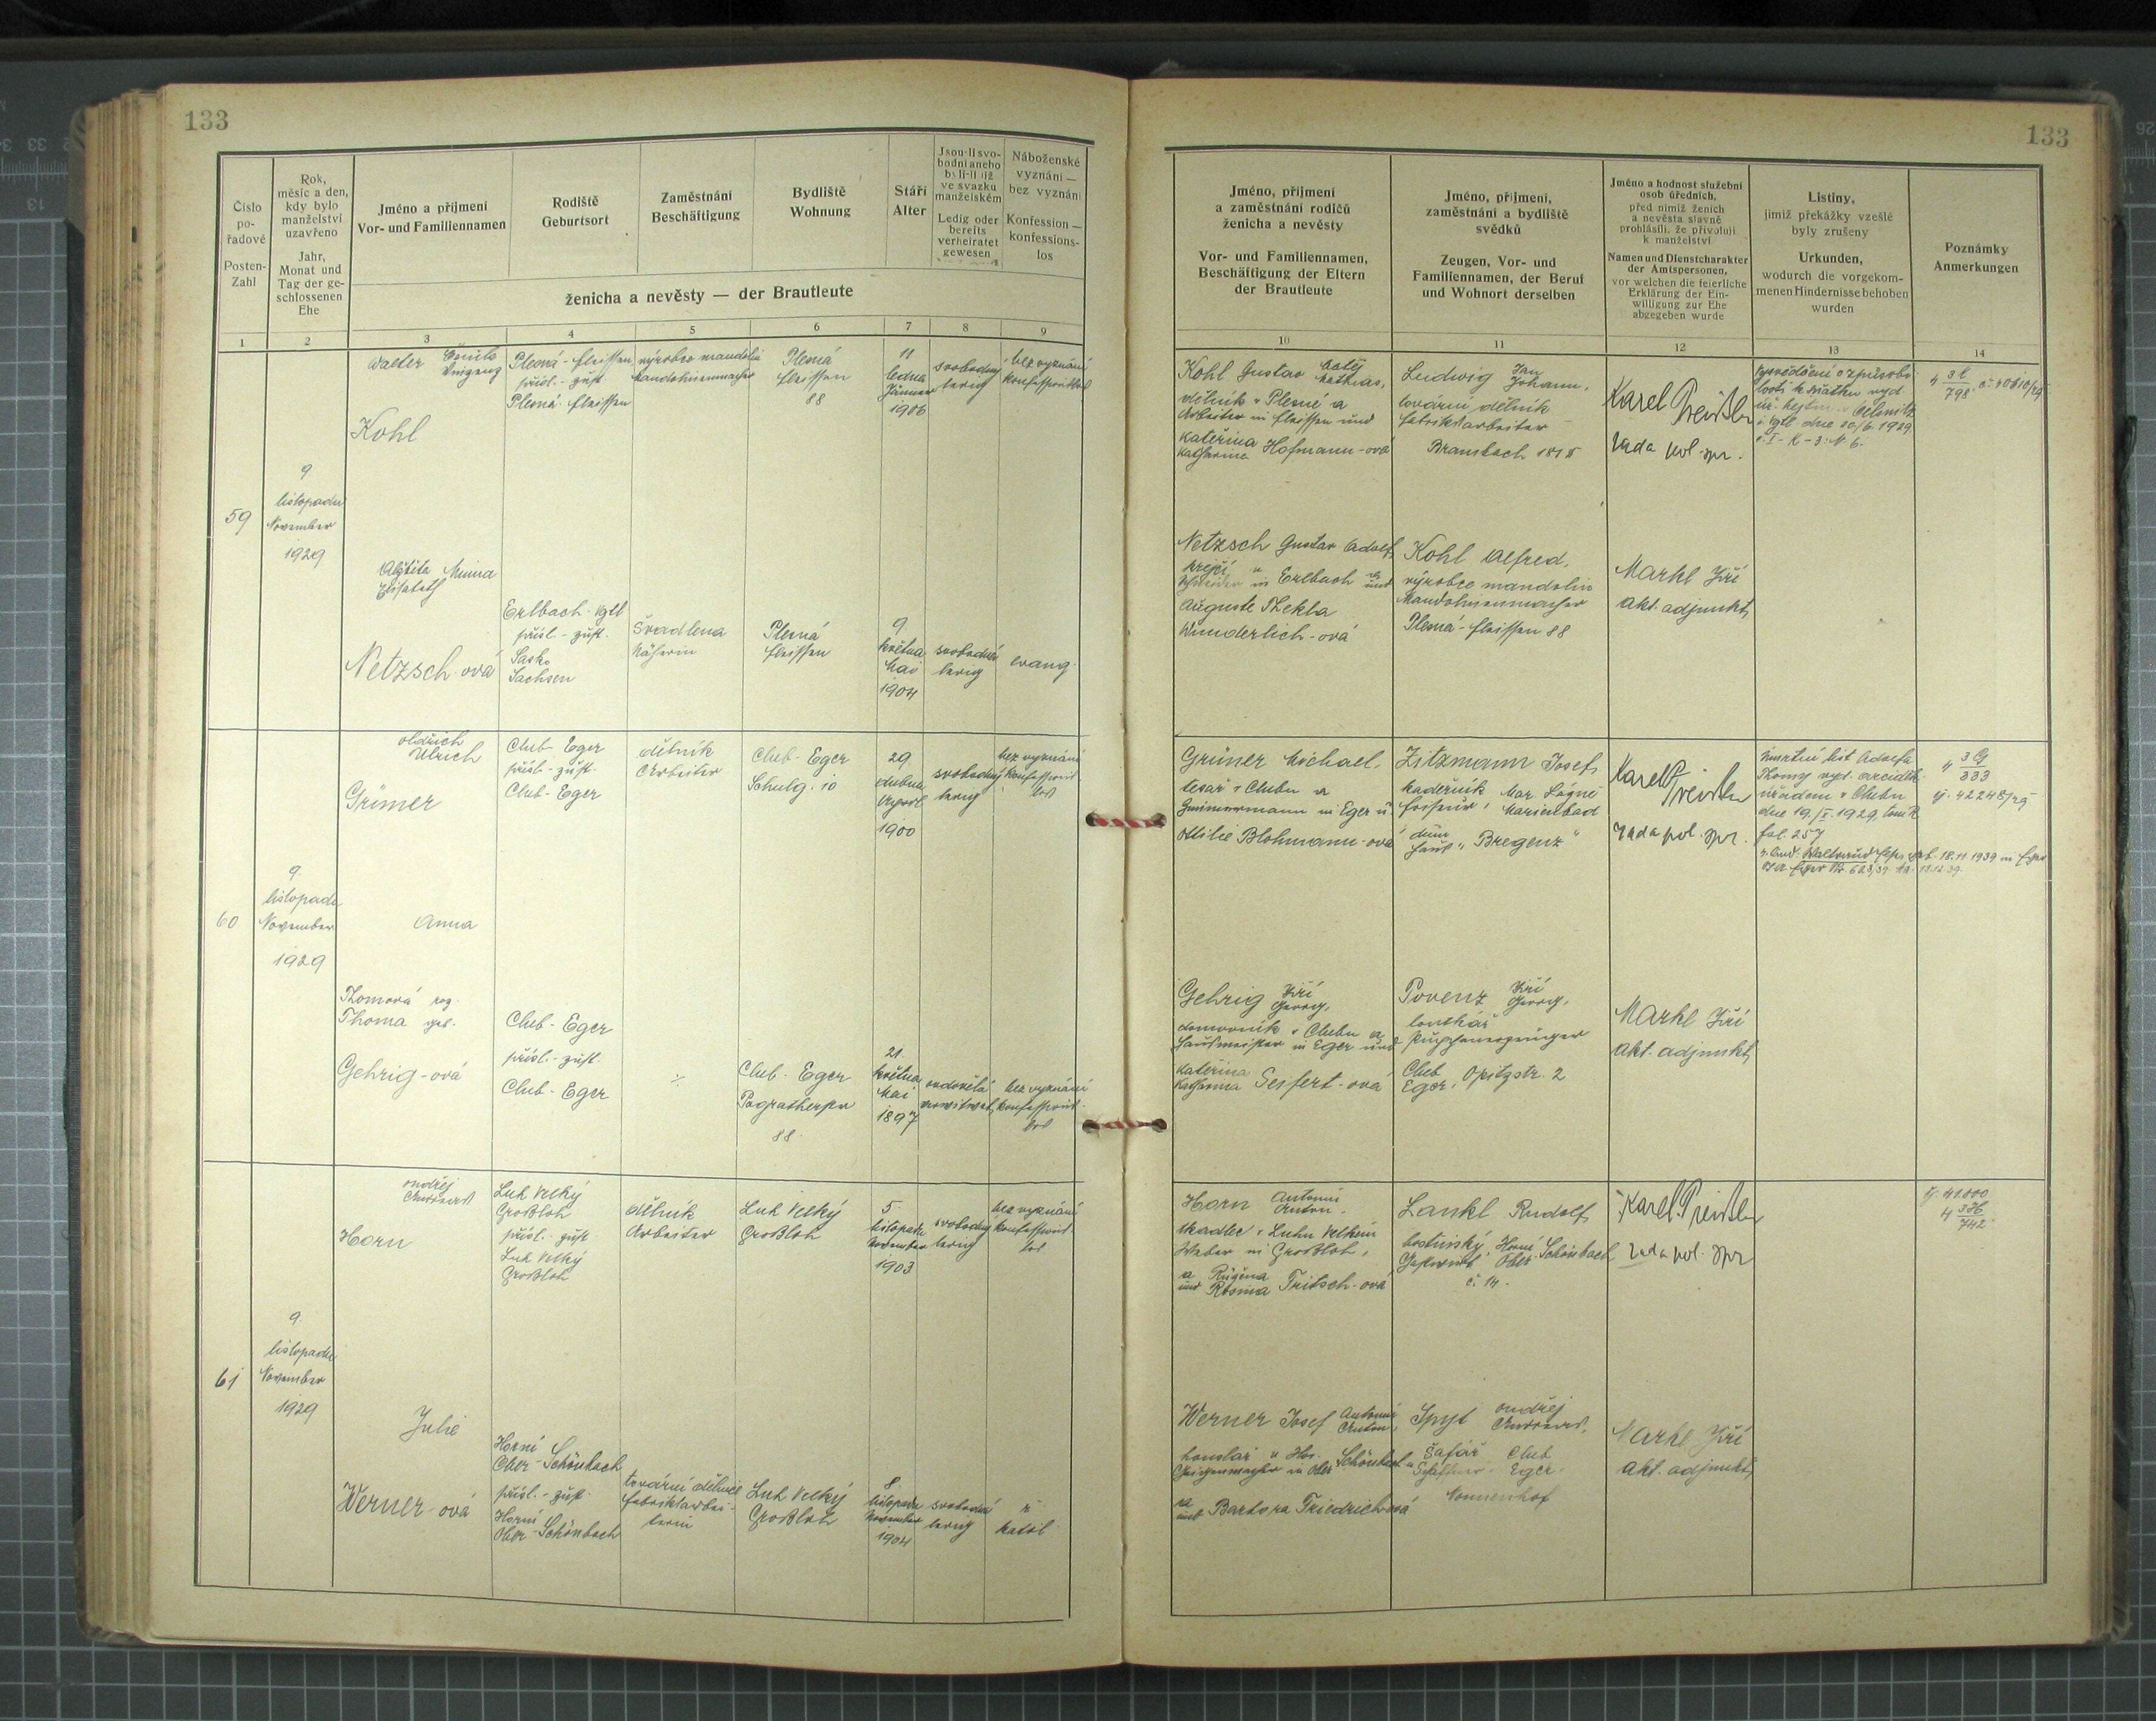 133
133
Číslo
po-
řadové
Posten-
Zahl
Rok,
měsíc a den,
kdy bylo
manželství
uzavřeno
Jahr,
Monat und
Tag der ge-
schlossenen
Ehe
Jméno a příjmení
Vor- und Familiennamen
Rodiště
Geburtsort
Zaměstnání
Beschäftigung
Bydliště
Wohnung
Stáří
Alter
Jsou-li svo-
bodni aneho
byli-li již
ve svazku
manželském
Ledig oder
bereits
verheiratet
gewesen
Náboženské
vyznání —
bez vyznání
Konfession —
konfessions-
los
ženicha a nevěsty — der Brautleute
1 2 3 4 5 6 7 8 9
Jméno, příjmení
a zaměstnání rodičů
ženicha a nevěsty
Vor- und Familiennamen,
Beschäftigung der Eltern
der Brautleute
Jméno, příjmení,
zaměstnání a bydliště
svědků
Zeugen, Vor- und
Familiennamen, der Beruf
und Wohnort derselben
Jméno a hodnost služební
osob úředních,
před nimiž ženich
a nevěsta slavně
prohlásili, že přivolují
k manželství
Namen und Dienstcharakter
der Amtspersonen,
vor welchen die feierliche
Erklärung der Ein-
willigung zur Ehe
abgegeben wurde
Listiny,
jimiž překážky vzešlé
byly zrušeny
Urkunden,
wodurch die vorgekom-
menen Hindernisse behoben
wurden
Poznámky
Anmerkungen
10 11 12 13 14
59
9
listopadu
November
1929
Walter
Kohl
Plesná - Fleissen
přísl. - zust.
Plesná - Fleissen
výrobce mandolin
Mandolinenmacher
Plesná
Fleissen
88
11
ledna
Jänner
1906
svobodný
ledig
bez vyznání
konfessionslos
Kohl Gustav Matěj
Mathias,
dělník v Plesné a
Arbeiter in Fleissen und
Kateřina
Katharina Hofmann-ová
Ludwig Jan
Johann,
tovární dělník
Fabriksarbeiter
Brambach
Karel
rada pol. spr.
Alžběta Minna
Elisabeth
Netzsch-ová
Erlbach Vgtl
přísl. - zust.
Sasko
Sachsen
Švadlena
Näherin
Plesná
Fleissen
9.
května
Mai
1904
svobodná
ledig
evang.
Netzsch Gustav Adolf,
krejčí v
in Erlbach a
und
Auguste Thekla
Wunderlich-ová
Kohl Alfred,
výrobce mandolin
Mandolinenmacher
Plesná - Fleissen 88
Markl Jiří
akt. adjunkt,
60
9.
listopadu
November
1929
Oldřich
Ulrich
Grüner
Cheb - Eger
přísl. - zust.
Cheb - Eger
dělník
Arbeiter
Cheb - Eger
Schulg. 10
29.
dubna
April
1900
svobodný
ledig
bez vyznání
konfessions-
los
Grüner Michael,
tesař v Chebu a
Zimmermann in Eger u.
Ottilie Blohmann-ová
Zitzmann Josef,
kadeřník Mar. Lázně
Friseur, Marienbad
dům
Haus "Bregenz"
Karel
rada pol. spr.
úmrtní list Adolfa
Thomy vyd.
úřadem v Chebu
fol. 257
4 3 G
333
Anna
Thomová roz.
Thoma geb.
Gehrig-ová
Cheb - Eger
přísl. - zust.
Cheb - Eger
Cheb - Eger
88.
21.
května
Mai
1897
ovdovělá
verwitwet,
bez vyznání
konfessions-
los
Gehrig Jiří
Georg,
domovník v Chebu a
Hausmeister in Eger und
Kateřina
Katharina Seifert-ová
Povenz Jiří
Georg,
Cheb
Eger, Opitzstr. 2
Markl Jiří
akt. adjunkt,
61
9.
listopadu
November
1929
Ondřej
Andreas
Horn
Luh Velký
Großloh
přísl. - zust
Luh Velký
Großloh
dělník
Arbeiter
Luh Velký
Großloh
5.
listopadu
November
1903
svobodný
ledig
bez vyznání
konfessions-
los
Horn Antonín
Anton,
tkadlec v Luhu Velkém
Weber in Großloh,
a Růžena
und Rosina Fritsch-ová
Lankl Rudolf,
hostinský, Horní
Gastwirt Ober Schönbach
č. 14.
Karel
rada pol. spr
Julie
Werner-ová
Horní
Ober - Schönbach
přísl. - zust.
Horní
Ober - Schönbach
tovární dělnice
Fabriksarbei-
terin
Luh Velký
Großloh
8.
listopadu
November
1904
svobodná
ledig
ř.
katol.
Werner Josef Antonín
Anton,
houslař v Hor.
Geigenmacher in Ober Schönbach
a
und Barbora Friedrichová
Ondřej
Andreas,
Šafář Cheb
Schaffner, Eger,
Nonnenhof
Markl Jiří
akt. adjunkt,